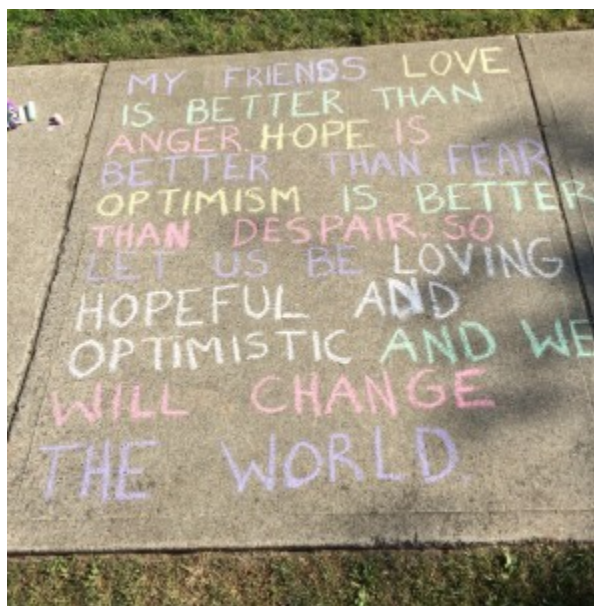 MY FRIENDS LOVE
IS BETTER THAN
ANGER. HOPE IS
BETTER THAN FEAR
OPTIMISM IS BETTER
THAN DESPAIR. SO
LET US BE LOVING
HOPEFUL AND
OPTIMISTIC AND WE
WILL CHANGE
THE WORLD.